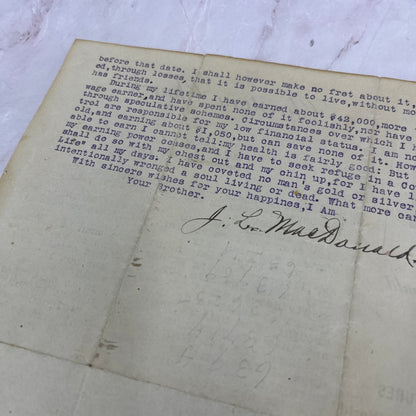 before that date. I shall however make no fret about it.
ed,through losses, that it is possible to live,without mo
has friends.
During my lifetime I have earned about $42,000,more
wage earner,and have spent none of it foolishly,nor
through speculative schemes. Circumstances over which I
trol are responsible for my low financial status. I am
old,and earning about $1,080,but can save none of it. How
able to earn I cannot tell:my health is fairly good: But
my earning power ceases,and I have to seek refuge in a Co
shall do so with my chest out and my chin up,for I have
Life" all my days. I have coveted no man's gold or silver
intentionally wronged a soul living or dead. What more can
With sincere wishes for your happines,I Am
Your Brother.
J. L. MacDonald.